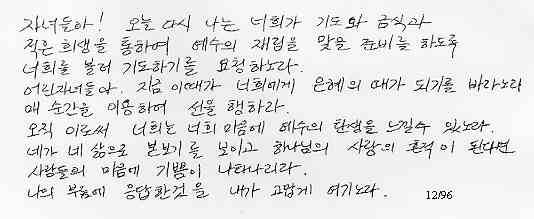 자녀들아! 오늘 다시 나는 너희가 기도와 금식과
작은 희생을 통하여 예수의 재림을 맞을 준비를 하도록
너희를 불러 기도하기를 요청하노라.
어린자녀들아. 지금 이때가 너희에게 은혜의 때가 되기를 바라노라
매 순간을 이용하여 선을 행하라.
오직 이로써 너희는 너희 마음에 예수의 탄생을 느낄수 있노라.
네가 네 삶으로 본보기를 보이고 하나님의 사랑의 흔적이 된다면
사람들의 마음에 기쁨이 나타나리라.
나의 부름에 응답한것을 내가 고맙게 여기노라. 12/96